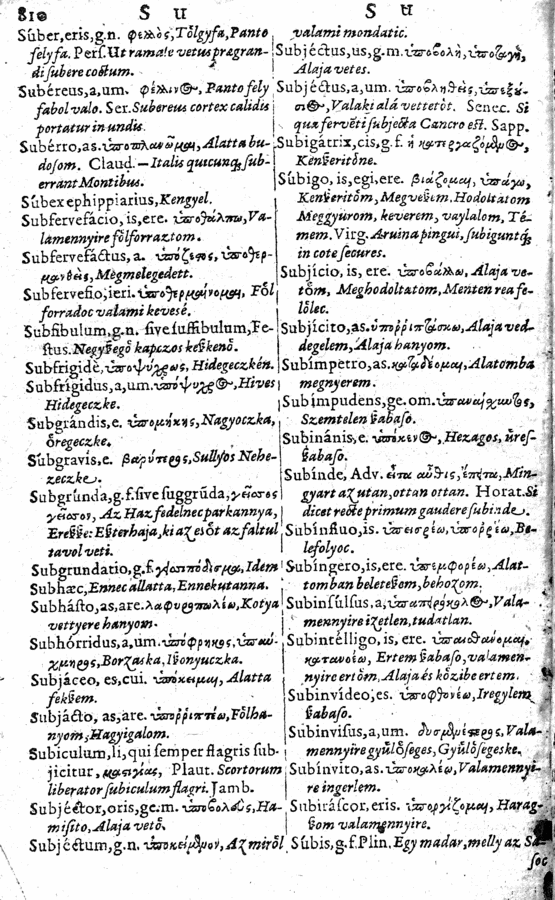 810 S U S U
Súber, eris, g.n. φελλὸς, Tölgyfa, Panto
felyfa. Pers. Ut ramale vetus prægran-
di subere coctum.
Subéreus, a, um. φέλλιν⊕, Panto fely
fabol valo. Ser. Subereus cortex calidis
portatur in undis.
Subérro, as. ὑποπλανῶμαι, Alatta bu-
dosom. Claud. — Italis quicunq; sub-
errant Montibus.
Súbex ephippiarius, Kengyel.
Subfervefácio, is, ere. ὑποθάλπω, Va-
lamennyire fölforraztom.
Subfervefáctus, a. ὑπόζεστος, ὑποθερ-
μανθεὶς, Megmelegedett.
Subfervefio, ieri. ὑποθερμαίνομαι, Föl
forradoc valami kevesé.
Subfíbulum, g.n. sive suffibulum, Fe-
stus. Negyßegö kapczos keßkenö.
Subfrigidè, ὑποψύχρως, Hidegeczkén.
Subfrígidus, a, um. ὑπόψυχρ⊕, Hives
Hidegeczke.
Subgrándis, e. ὑπομήκης, Nagyoczka,
öregeczke.
Subgravis, e. βαρύτερος, Sullyos Nehe-
zeczke.
Subgrúnda, g.f. sive suggrūda, γεῖσσος
γεῖσσον, Az Haz fedelnec parkannya,
Ereßße: Eßterhaja, ki az esöt az faltul
tavol veti.
Subgrundatio, g.f. γεισσπόδισμα, Idem
Subhæc, Ennec allatta, Ennekutanna.
Subhásto, as, are. λαφυροπωλέω, Kotya
vettyere hanyom.
Subhórridus, a, um. ὑπόφρικος, ὑπαυ-
χμηρος, Borzaska, Ißonyuczka.
Subjáceo, es, cui. ὑπόκειμαι, Alatta
fekßem.
Subjácto, as, are. ὑποῤῥιπτέω, Fölha-
nyom, Hagyigalom.
Subiculum, li, qui semper flagris sub-
jicitur, μαστιγίας, Plaut. Scortorum
liberator subiculum flagri. Jamb.
Subjéctor, oris, ge.m. ὑποβολεὺς, Ha-
misito, Alaja vetö.
Subjéctum, g.n. ὑποκείμενον, Az miröl
valami mondatic.
Subjéctus, us, g.m. ὑποβολὴ, ὑποταγὴ,
Alaja vetes.
Subjéctus, a, um. ὑποβληθεὶς, ὑπεξύ-
σι⊕, Valaki alá vettetöt. Senec. Si
qua fervēti subjecta Cancro est. Sapp.
Subigátrix, cis, g.f. ἡ κατεργαζομένη,
Kenßeritöne.
Súbigo, is, egi, ere. βιάζομαι, ὑπάγω,
Kenßeritöm, Megveßem. Hodoltatom
Meggyurom, keverem, vaylalom, Té-
mem. Virg. Arvina pingui, subiguntq;
in cote secures.
Subjício, is, ere. ὑποβάλλω, Alaja ve-
töm, Meghodoltatom, Menten rea fe-
lölec.
Subjícito, as. ὑποῤῥιπτάσκω, Alaja ved-
degelem, Alaja hanyom.
Subímpetro, as. καταδέομαι, Alatomba
megnyerem.
Subímpudens, ge. om. ὑπαναίσχυντος,
Szemtelen ßabaso.
Subinánis, e. ὑπόκεν⊕, Hezagos, üres-
ßabaso.
Subínde, Adv. εἶτα αὖθις, ἔπειτα, Min-
gyart az utan, ottan ottan. Horat. Si
dicet recte primum gaudere subinde.
Subínfluo, is. ὑπεισρέω, ὑποῤῥέω, Be-
lefolyoc.
Subíngero, is, ere. ὑπεμφορέω, Alat-
tomban beleteßom, behozom.
Subinsúlsus, a, ὑπαπειρόκαλ⊕, Vala-
mennyire izetlen, tudatlan.
Subintélligo, is, ere. ὑπαισθάνομαι,
κατανοέω, Ertem ßabaso, valamen-
nyire ertöm, Alaja és közibe ertem.
Subinvídeo, es. ὑποφθονέω, Iregylem
ßabaso.
Subinvisus, a, um. δυσμενέστερος, Vala-
mennyire gyülöseges, Gyülösegeske.
Subinvíto, as. ὑποκαλέω, Valamennyi-
re ingerlem.
Subiráscor, eris. ὑποργίζομαι, Harag-
ßom valamennyire.
Súbis, g.f. Plin. Egy madar, melly az Sa-
soc